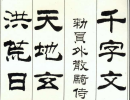 千字文
勅員外散騎侍
天地玄
洪荒日